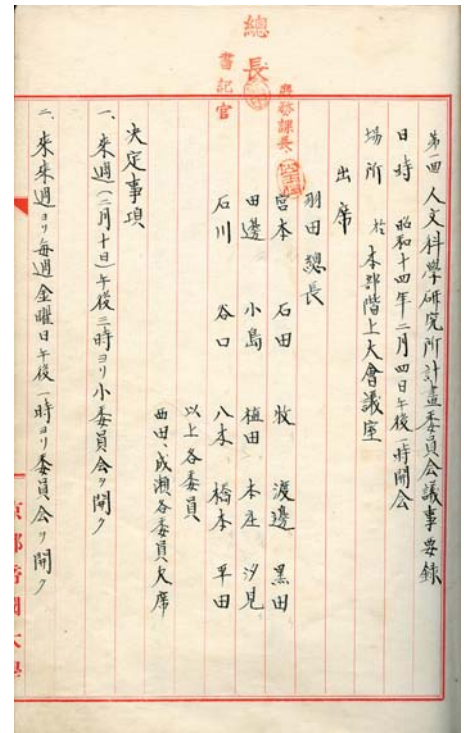 總長
書記官
庶務課長
第一回人文科學研究所計畫委員会議事要錄
日時 昭和十四年二月四日午後一時開会
場所 於本部階上大會議室
出席
羽田總長
宮本 石田 牧 渡邊 黒田
田邊 小島 植田 本庄 汐見
石川 谷口 八木 橋本 平田
以上各委員
西田、成瀬各委員欠席
決定事項
一、來週(二月十日)午後三時ヨリ小委員会ヲ開ク
二、來來週ヨリ毎週金曜日午後一時ヨリ委員会ヲ開ク
京都帝國大學